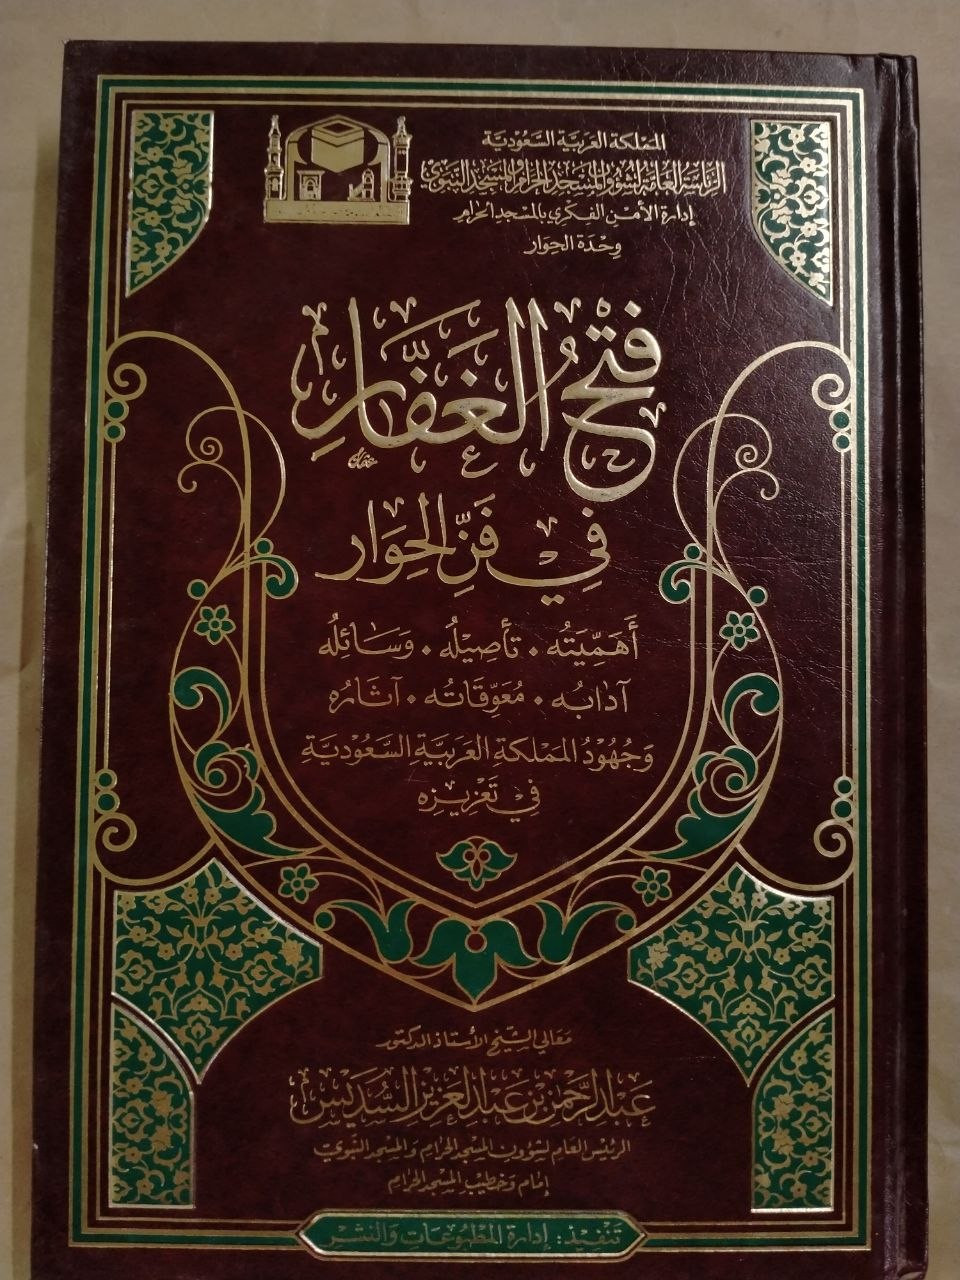 المملكة العربية السعودية
الرئاسة العامة لشؤون المسجد الحرام والمسجد النبوي
إدارة الأمن الفكري بالمسجد الحرام
وحدة الحوار
فَتْحُ الغَفَّارِ
فِي فَنِّ الحِوَار
أَهَمِّيَتُه . تأصِيْلُه . وَسَائِلُه
آدَابُه . مُعَوِّقَاتُه . آثَارُه
وَجُهُوْدُ المَمْلكةِ العَرَبِيَّةِ السَّعُوْدِيَّةِ
فِيْ تَعْزِيْزِه
معالي الشيخ الأستاذ الدكتور
عبد الرحمن بن عبد العزيز السديس
الرئيس العام لشؤون المسجد الحرام والمسجد النبوي
إمام وخطيب المسجد الحرام
تنفيذ: إدارة المطبوعات والنشر